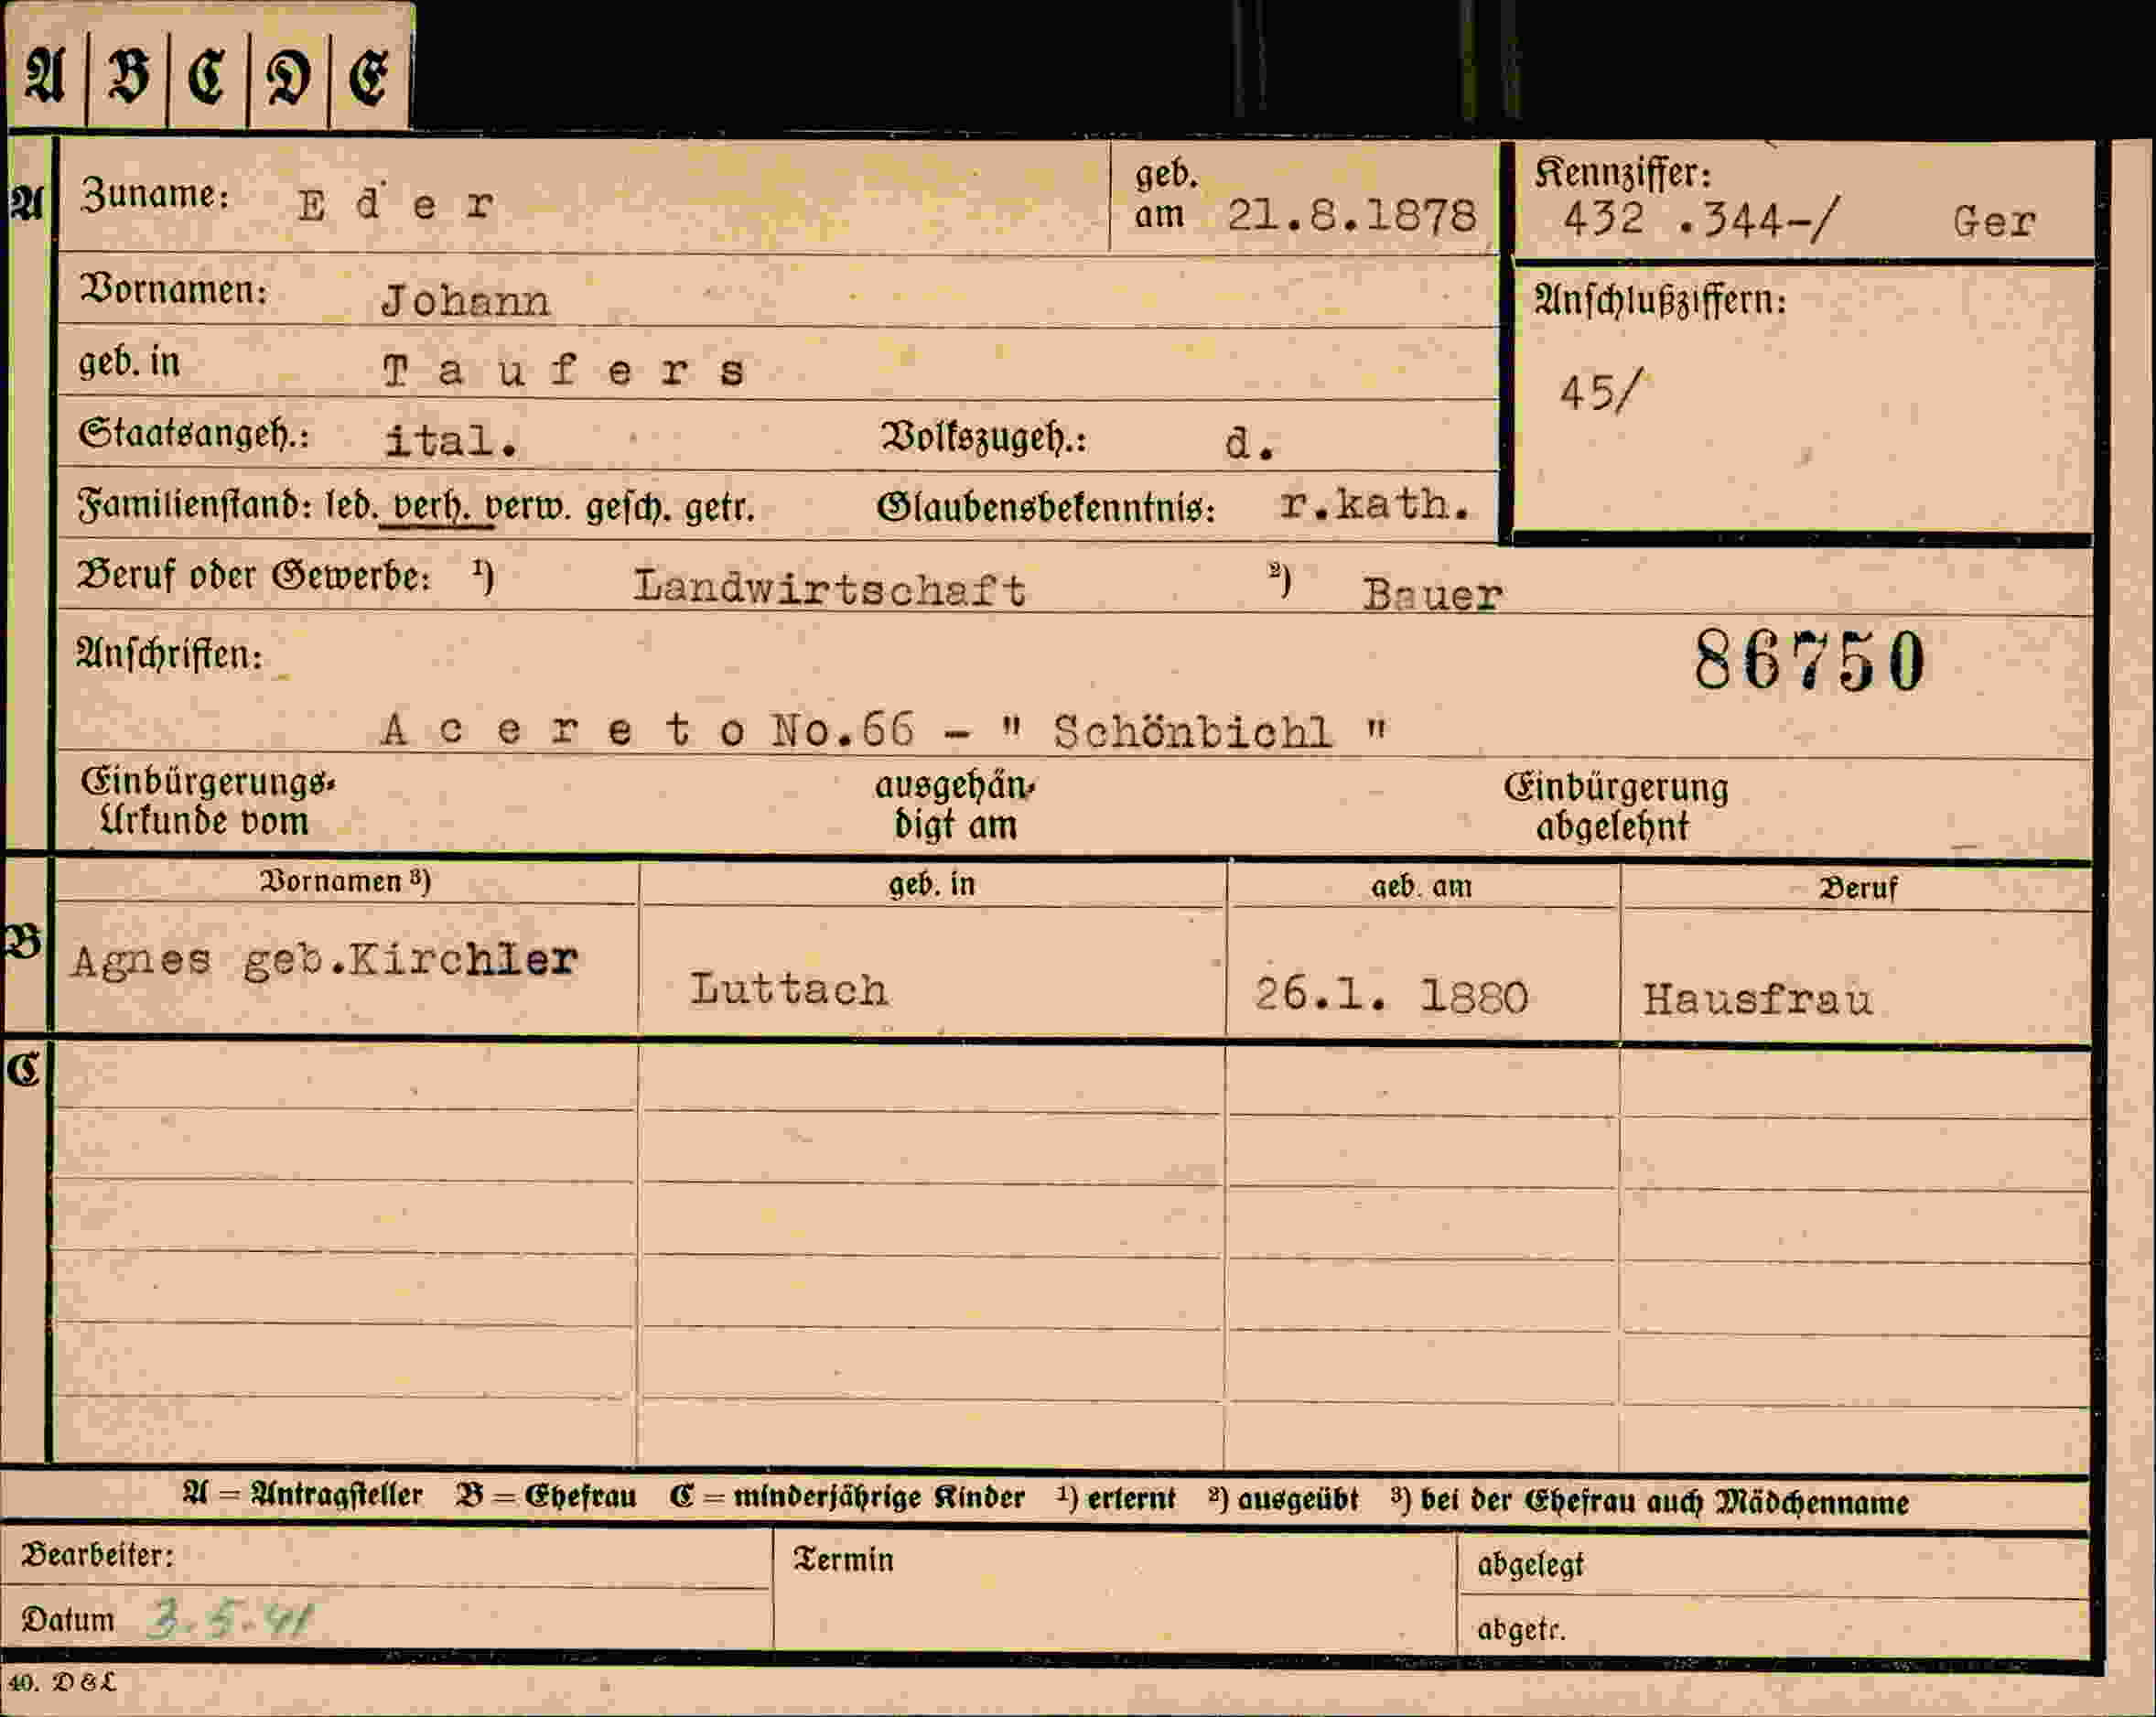 A | B | C | D | E
A Zuname: E d e r geb. am 21.8.1878 Kennziffer: 432 .344-/ Ger
Vornamen: Johann
Anschlußziffern:
geb. in T a u f e r s
45/
Staatsangeh.: ital. Volkszugeh.: d.
Familienstand: led. verh. verw. gesch. getr. Glaubensbekenntnis: r.kath.
Beruf oder Gewerbe: ¹) Landwirtschaft ²) Bauer
Anschriften: 86750
A c e r e t o No.66 - " Schönbichl "
Einbürgerungs- ausgehän- Einbürgerung
Urkunde vom digt am abgelehnt
Vornamen ³) geb. in geb. am Beruf
B Agnes geb.Kirchler Luttach 26.1. 1880 Hausfrau
C
A = Antragsteller B = Ehefrau C = minderjährige Kinder ¹) erlernt ²) ausgeübt ³) bei der Ehefrau auch Mädchenname
Bearbeiter: Termin abgelegt
Datum 3.5.41 abgetr.
40. D & L